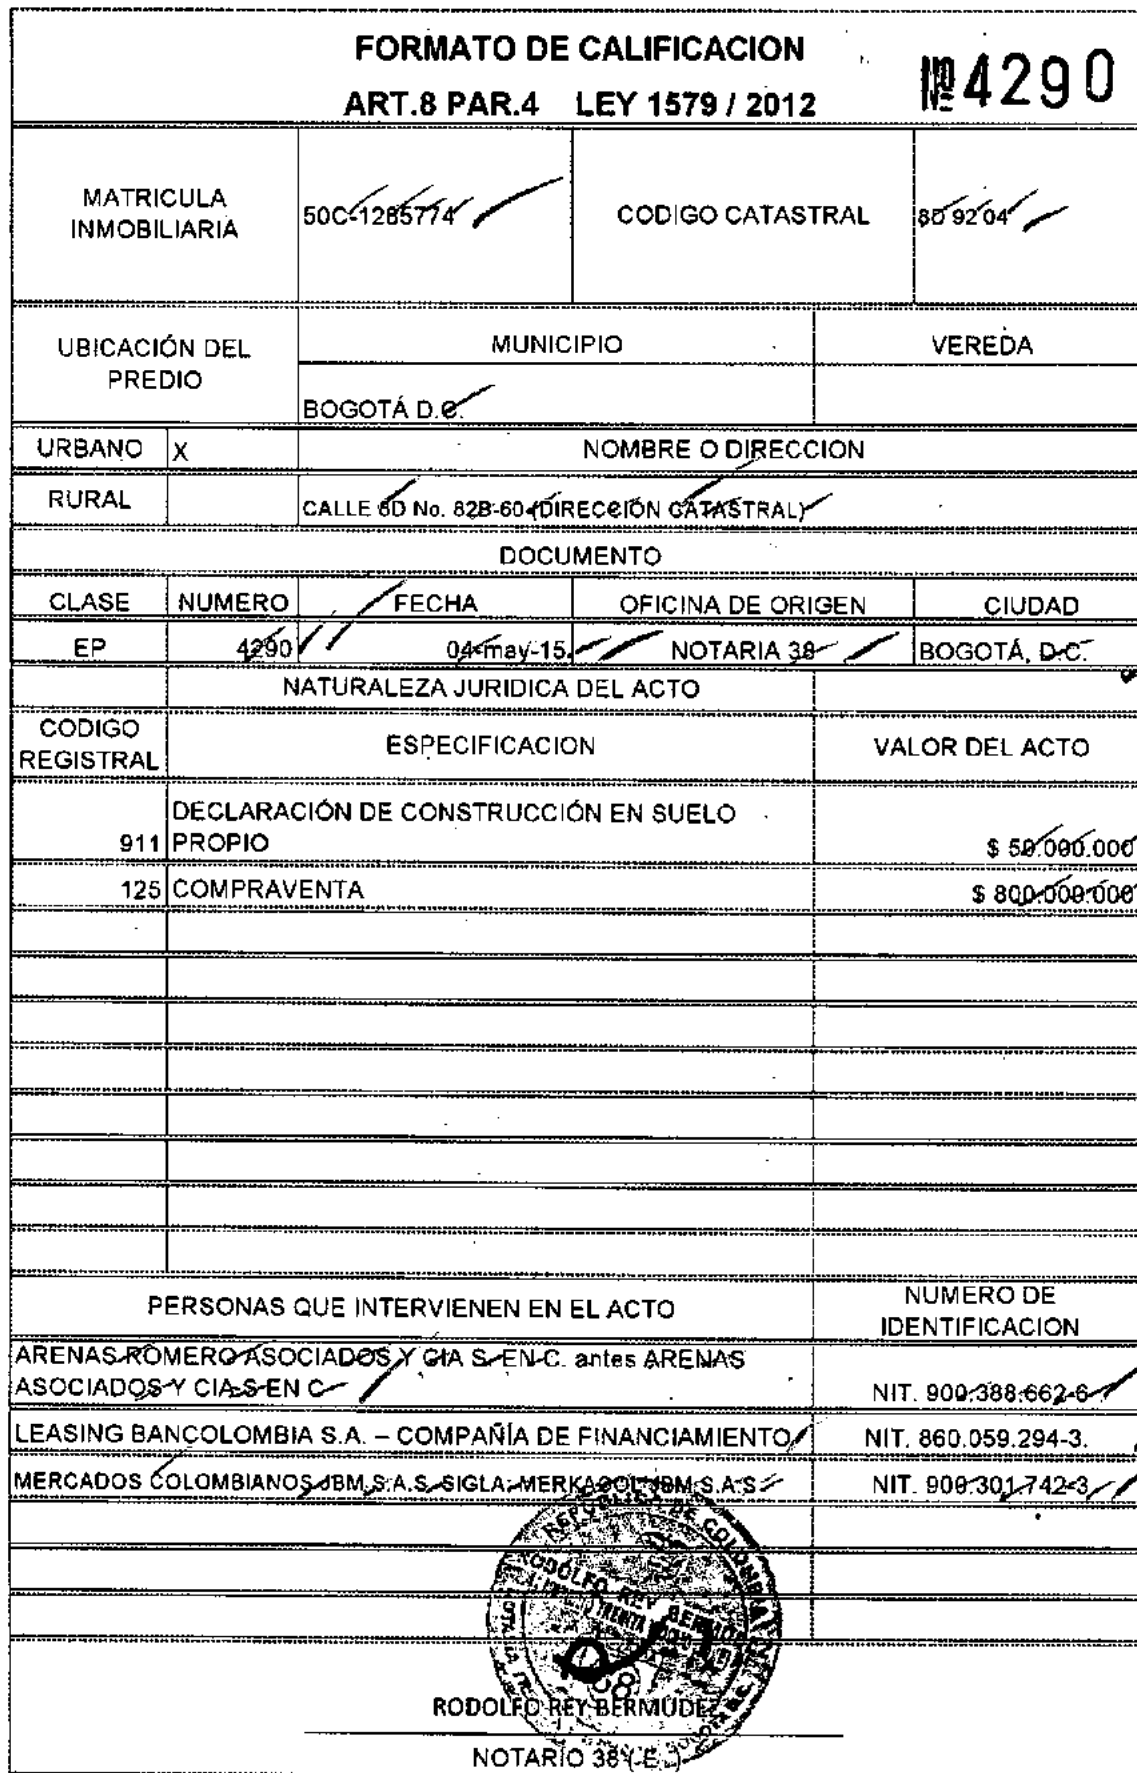 FORMATO DE CALIFICACION
ART.8 PAR.4 LEY 1579 / 2012
Nº 4290
MATRICULA
INMOBILIARIA
50C-1285774
CODIGO CATASTRAL
8D 92 04
UBICACIÓN DEL
PREDIO
MUNICIPIO
VEREDA
BOGOTÁ D.C.
URBANO X NOMBRE O DIRECCION
RURAL
CALLE 6D No. 82B-60 (DIRECCIÓN CATASTRAL)
DOCUMENTO
CLASE NUMERO FECHA OFICINA DE ORIGEN CIUDAD
EP 4290 04-may-15. NOTARIA 38 BOGOTÁ, D.C.
NATURALEZA JURIDICA DEL ACTO
CODIGO
REGISTRAL
ESPECIFICACION
VALOR DEL ACTO
DECLARACIÓN DE CONSTRUCCIÓN EN SUELO
911 PROPIO $ 50.000.000
125 COMPRAVENTA $ 800.000.000
PERSONAS QUE INTERVIENEN EN EL ACTO
NUMERO DE
IDENTIFICACION
ARENAS ROMERO ASOCIADOS Y CIA S. EN C. antes ARENAS
ASOCIADOS Y CIA S EN C
NIT. 900.388.662-6
LEASING BANCOLOMBIA S.A. – COMPAÑÍA DE FINANCIAMIENTO NIT. 860.059.294-3.
MERCADOS COLOMBIANOS JBM S.A.S. SIGLA MERKACOL JBM S.A.S NIT. 900.301.742-3
REPUBLICA DE COLOMBIA
RODOLFO REY BERMUDEZ
38
RODOLFO REY BERMÚDEZ
NOTARIO 38 (E.)